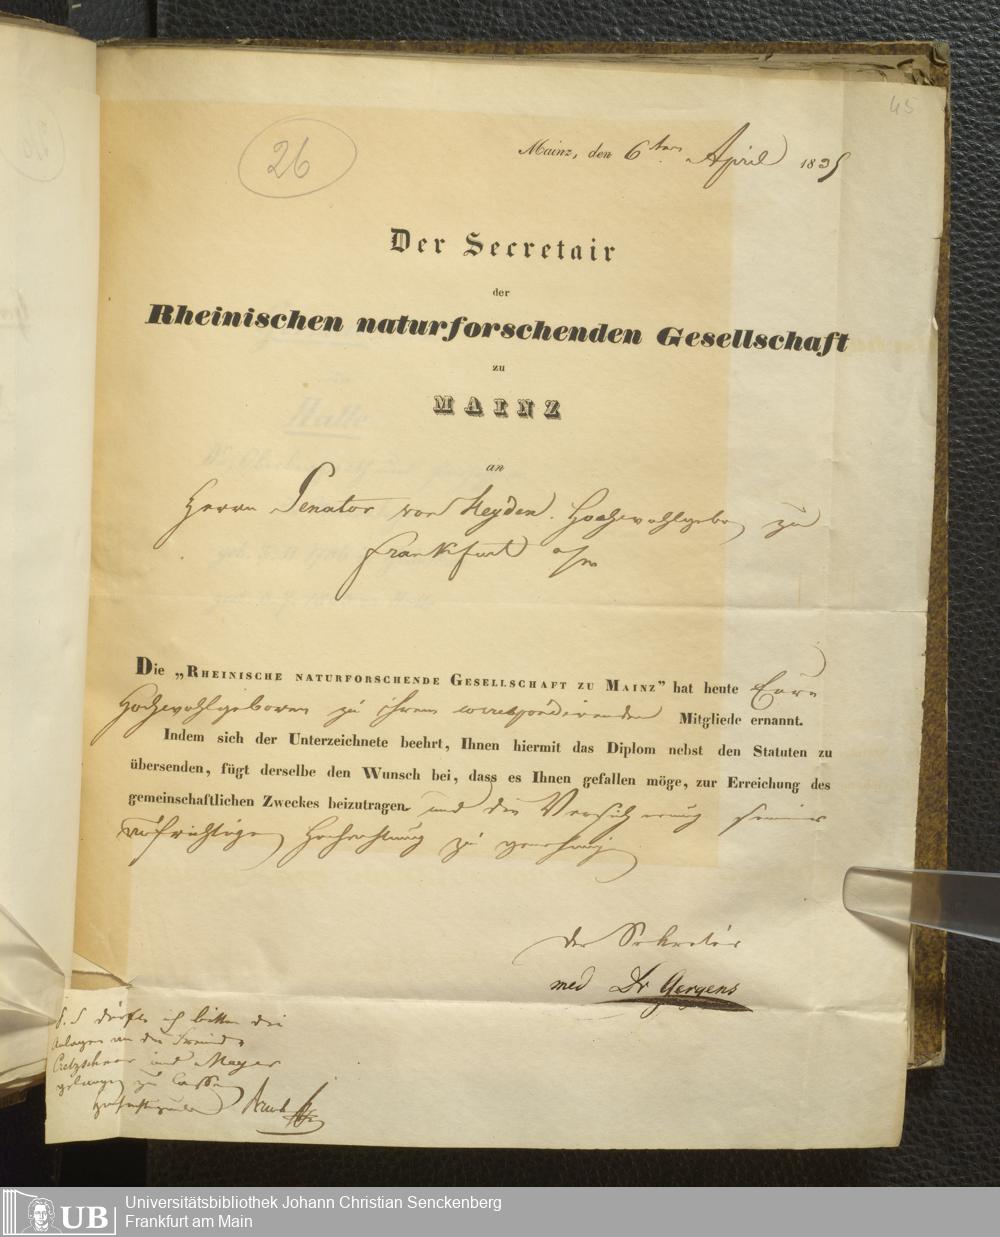 45
26
Mainz, den 6ten April 1835
Der Secretair
der
Rheinischen naturforschenden Gesellschaft
zu
MAINZ
an
Herrn Senator von Heyden Hochwohlgeboren zu
Frankfurt a/m
Die „Rheinische naturforschende Gesellschaft zu Mainz” hat heute Euer
Hochwohlgeboren zu ihrem correspondirenden Mitgliede ernannt.
Indem sich der Unterzeichnete beehrt, Ihnen hiermit das Diplom nebst den Statuten zu
übersenden, fügt derselbe den Wunsch bei, dass es Ihnen gefallen möge, zur Erreichung des
gemeinschaftlichen Zweckes beizutragen und die Versicherung seiner
aufrichtigen Hochachtung zu genehmigen
Der Sekretär
med Dr Gergens
P.S dürfte ich bitten die
Anlagen an die Freunde
Cretzschmar und Meyer
gelangen zu lassen
Universitätsbibliothek Johann Christian Senckenberg
Frankfurt am Main
UB